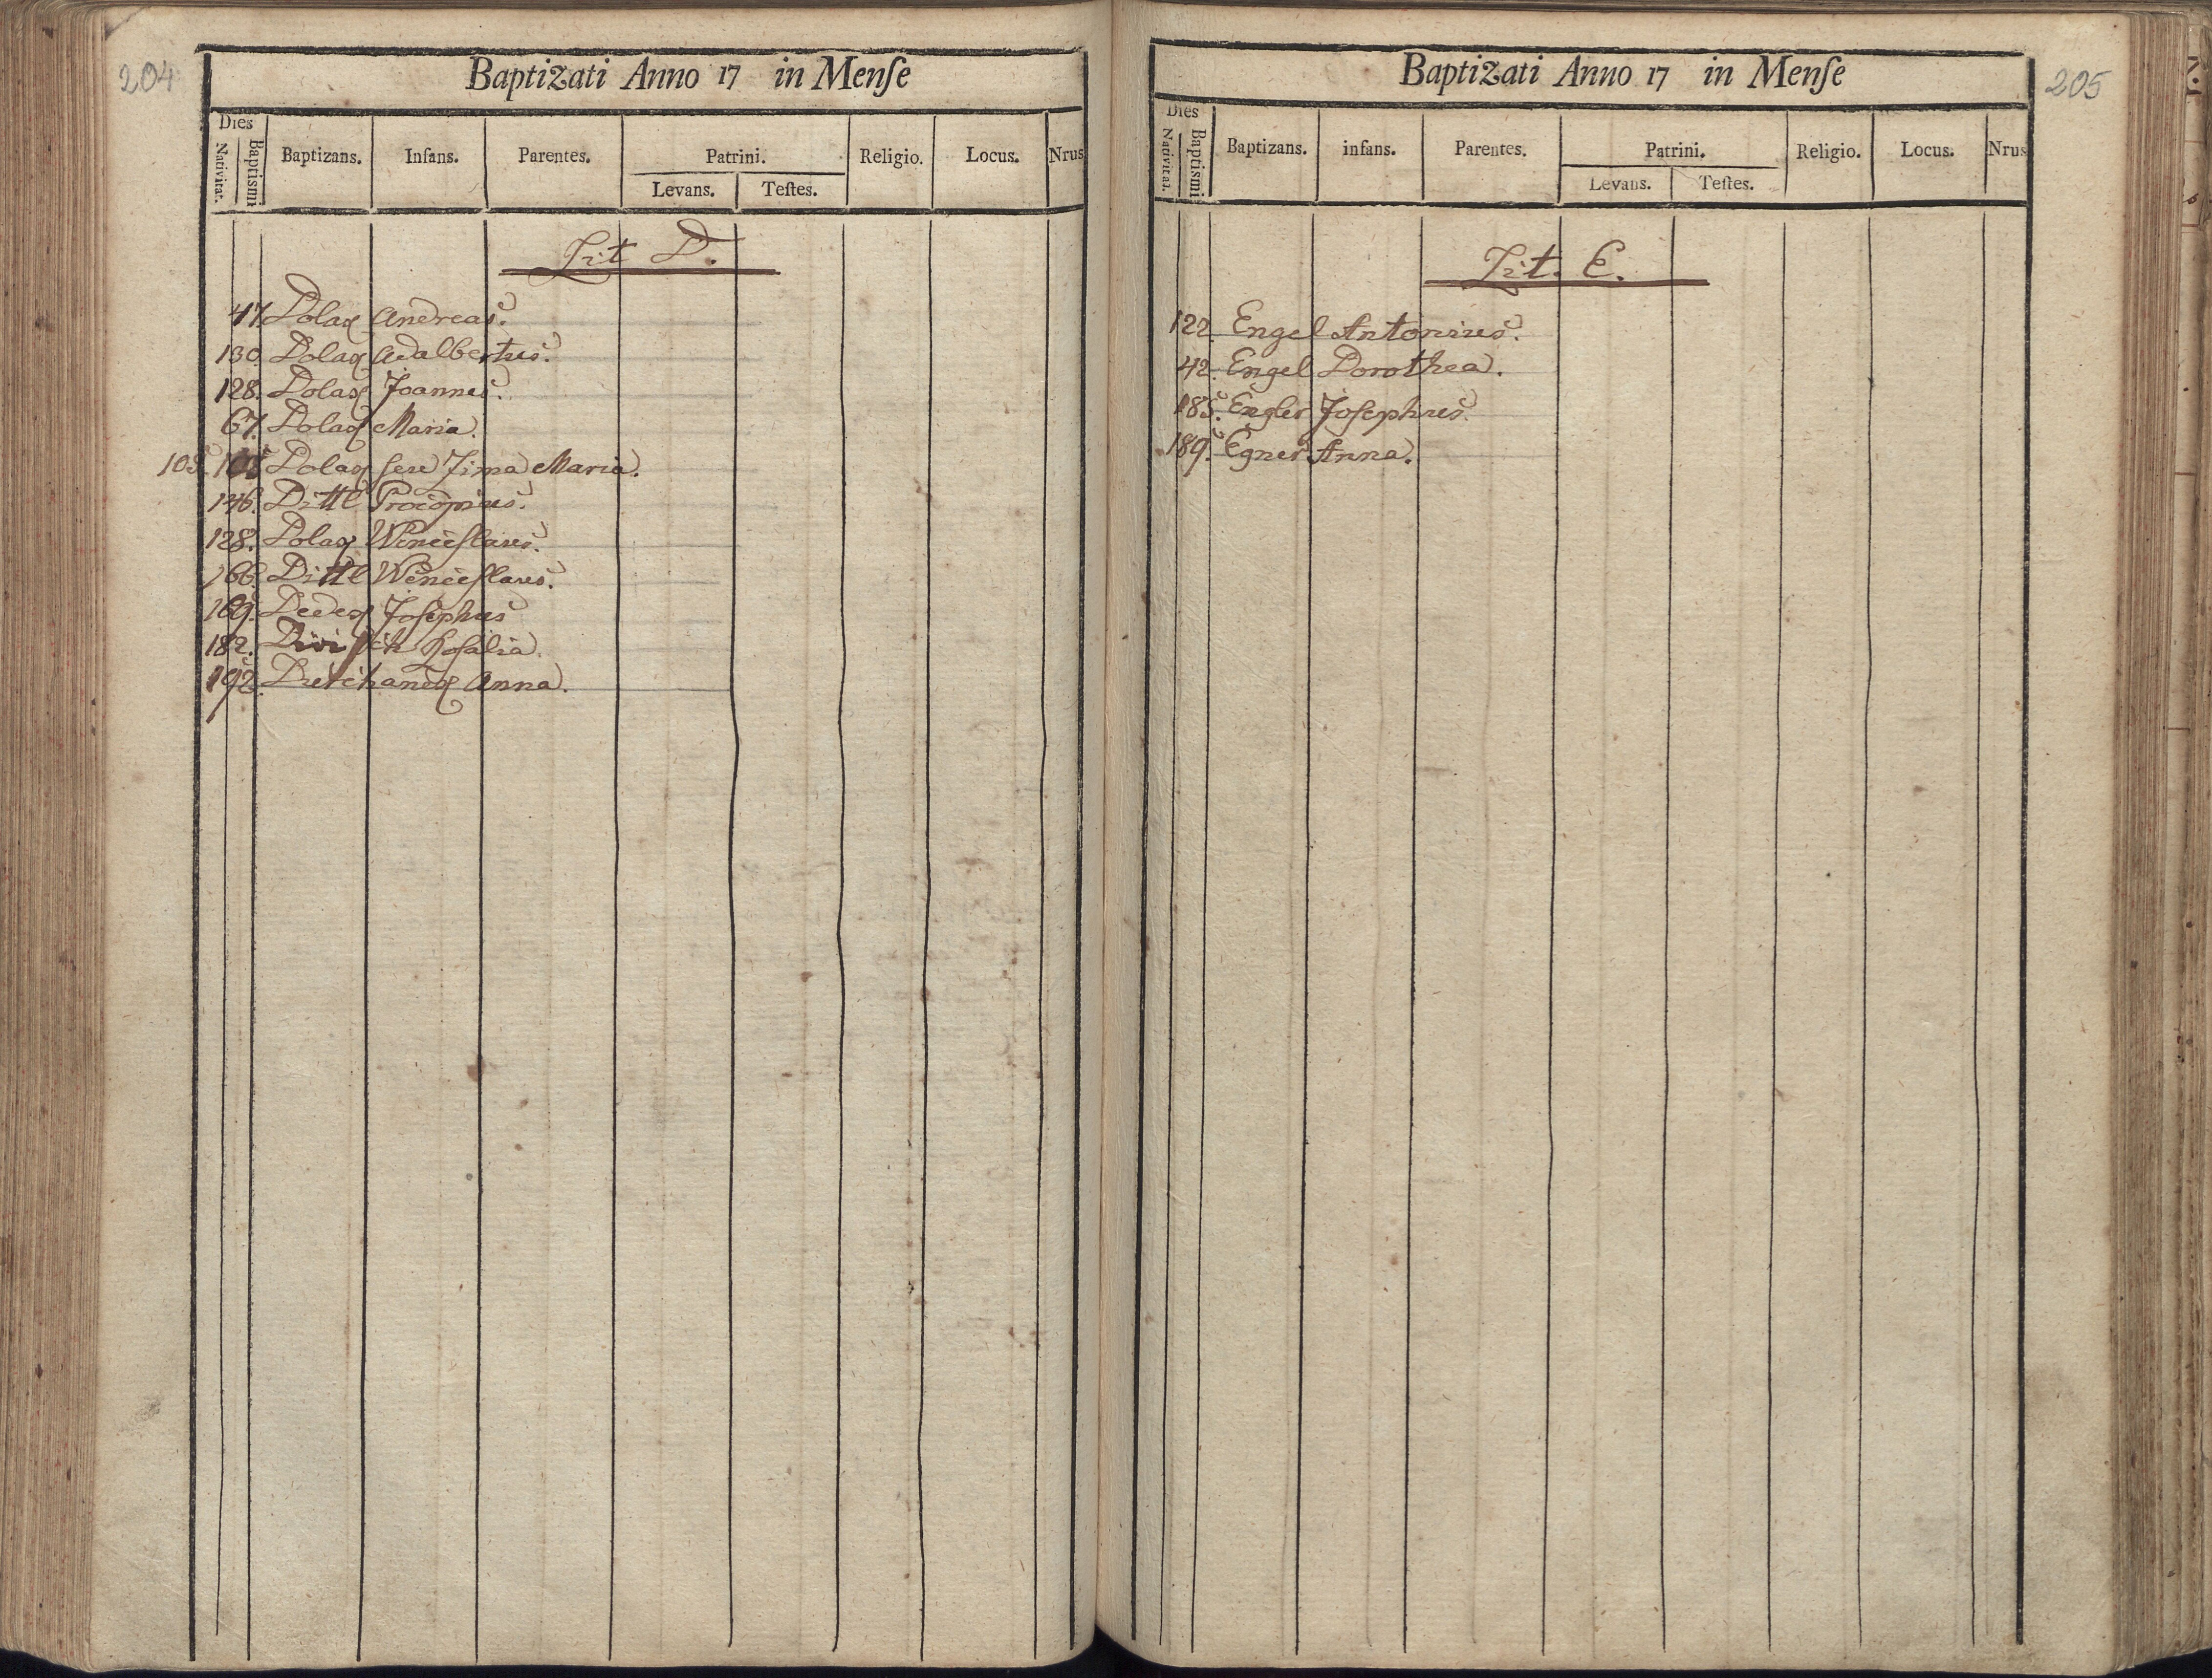 204
Baptizati Anno 17 in Menſe
Dies
Nativitat. Baptismi Baptizans. Infans. Parentes. Patrini. Religio. Locus. Nrus
Levans. Teſtes.
Lit D.
47. Dolaꝝ Andreas.
130. Dolaꝝ Adalbertus.
128. Dolaꝝ Joannes.
67. Dolaꝝ Maria.
105. Dolaꝝ seu Zima Maria.
146. Dittl Procopius.
128. Dolaꝝ Wenceſlaus.
166. Dittl Wenceſlaus.
169. Dedeꝝ Joſephus
182. Diviſch Roſalia.
192. Anna.
205
Baptizati Anno 17 in Menſe
Dies
Nativitat. Baptismi Baptizans. infans. Parentes. Patrini. Religio. Locus. Nrus
Levans. Teſtes.
Lit. E.
122. Engel Antonius.
42. Engel Dorothea.
185. Engler Joſephus.
189. Egner Anna.